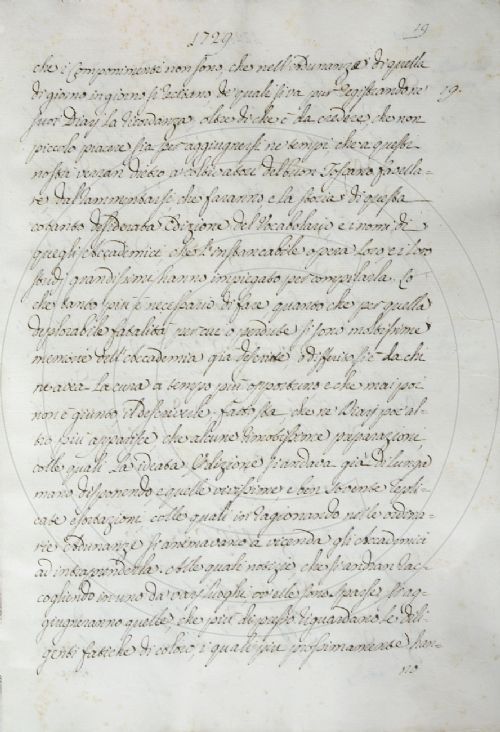 19
1729
che i Componimenti non sono, che nell'Adunanze di quella
di giorno in giorno si recitano de quali si va pur registrando ne
suoi Diarj la ricordanza oltre di che è da credere, che non 19.
piccolo piacere sia per aggiugnersi ne tempi, che a questi
nostri verran dietro a coltivatori del buon Toscano favella-
re dal rammentarsi che faranno e la storia di questa
cotanto desiderata Edizione del Vocabolario e i nomi di
quegli Accademici che l'instancabile opera loro e i loro
studj grandissimi hanno impiegato per compilarla. Lo
che tanto più è necessario di fare quanto che per quella
deplorabile fatalità per cui o perdute si sono moltissime
memorie dell'Accademia già distente, o differitosi è da chi
ne avea la cura a tempo più opportuno e che mai poi
non è giunto il descriverle, fatto sta che ne Diarj poc'al-
tro più apparisce che alcune preparazioni
colle quali la ideata Edizione si andava già di lunga
mano disponendo e quelle vivissime e ben sovente repli-
cate esortazioni colle quali in ragionando nelle ordina-
rie Adunanze si animavano a vicenda gli Accademici
ad intraprenderla. Alle quali notizie, che si andran rac-
cogliendo in uno da varj luoghi ov'elle sono sparse, s'ag-
giugneranno quelle, che più dappresso riguardano le dili-
genti fatiche di coloro, i quali più prossimamente han-
no